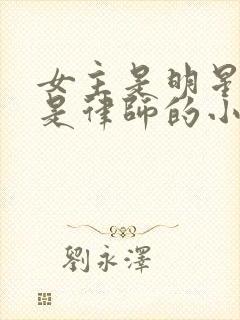 女主是明星
是律師的小
劉永澤